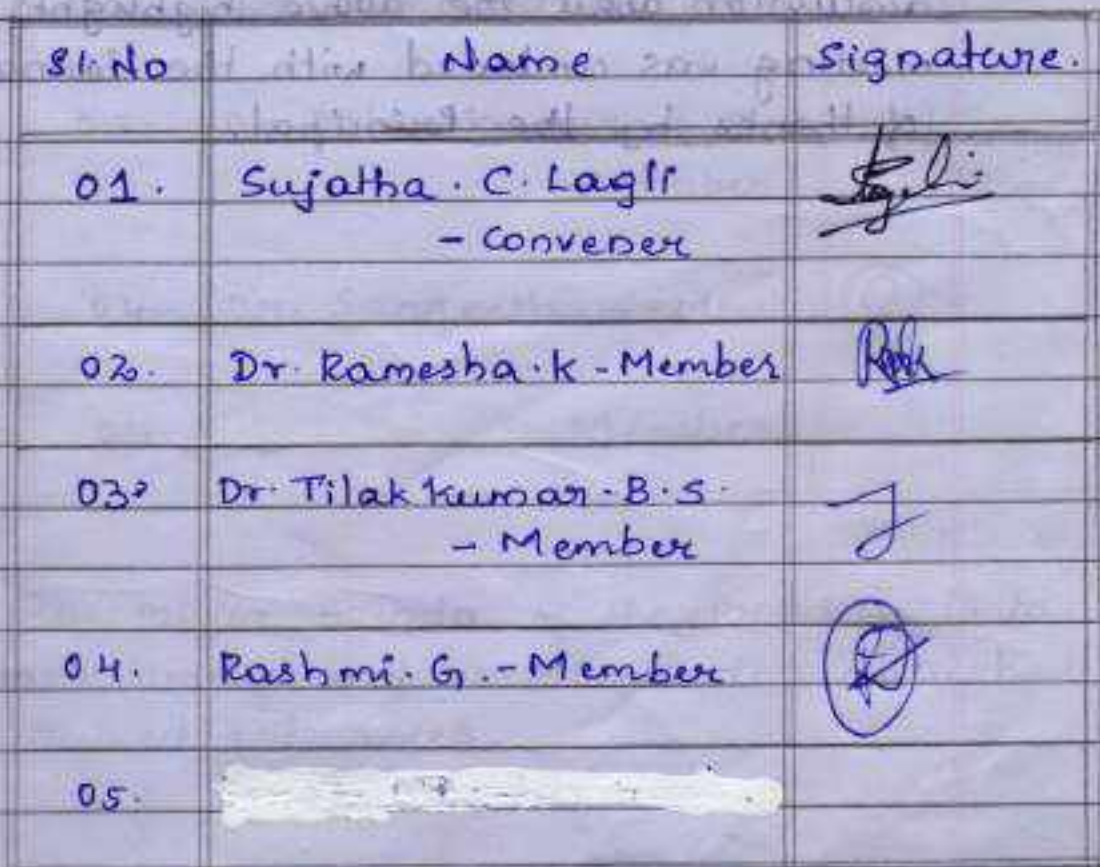 Sl. No Name Signature.
01. Sujatha. C. Lagli
- Convener
02. Dr. Ramesha. K - Member
03. Dr. Tilak Kumar. B. S.
- Member
04. Rashmi. G. - Member
05.